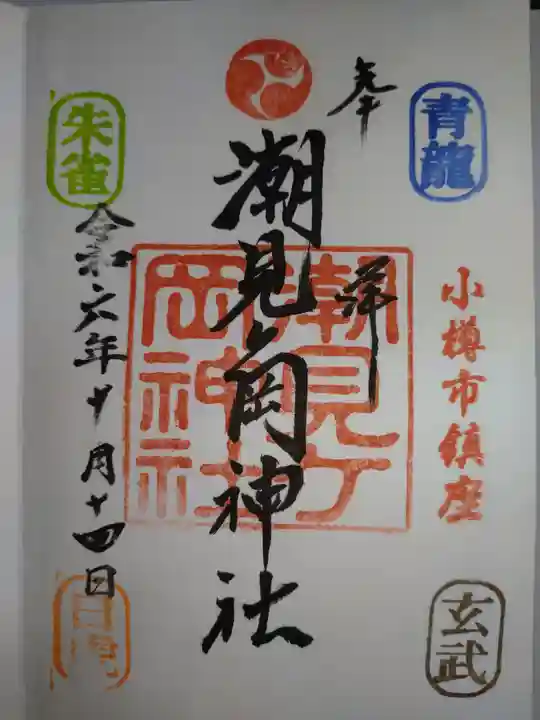 青龍
小樽市鎮座
玄武
奉拝
潮見ヶ岡神社
潮見ヶ岡神社
朱雀
令和六年十月十四日
白虎